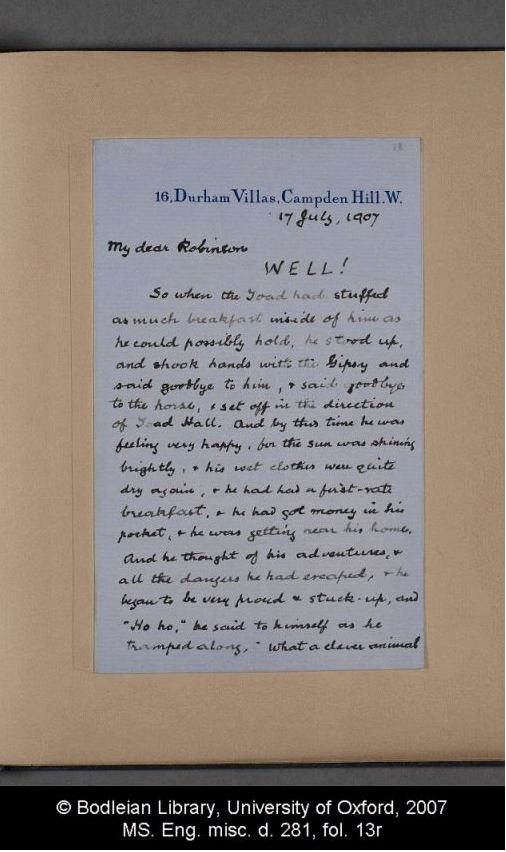 16, Durham Villas, Campden Hill. W.
17 July, 1907
My dear Robinson
WELL!
So when the Toad had stuffed
as much breakfast inside of him as
he could possibly hold, he stood up,
and shook hands with the Gipsy and
said goodbye to him, & said goodbye
to the horse, & set off in the direction
of Toad Hall. And by this time he was
feeling very happy, for the sun was shining
brightly, & his wet clothes were quite
dry again, & he had had a first-rate
breakfast, & he had got money in his
pocket, & he was getting near his home.
And he thought of his adventures, &
all the dangers he had escaped, & he
began to be very proud & stuck-up, and
"Ho ho," he said to himself as he
tramped along, "what a clever animal
© Bodleian Library, University of Oxford, 2007
MS. Eng. misc. d. 281, fol. 13r